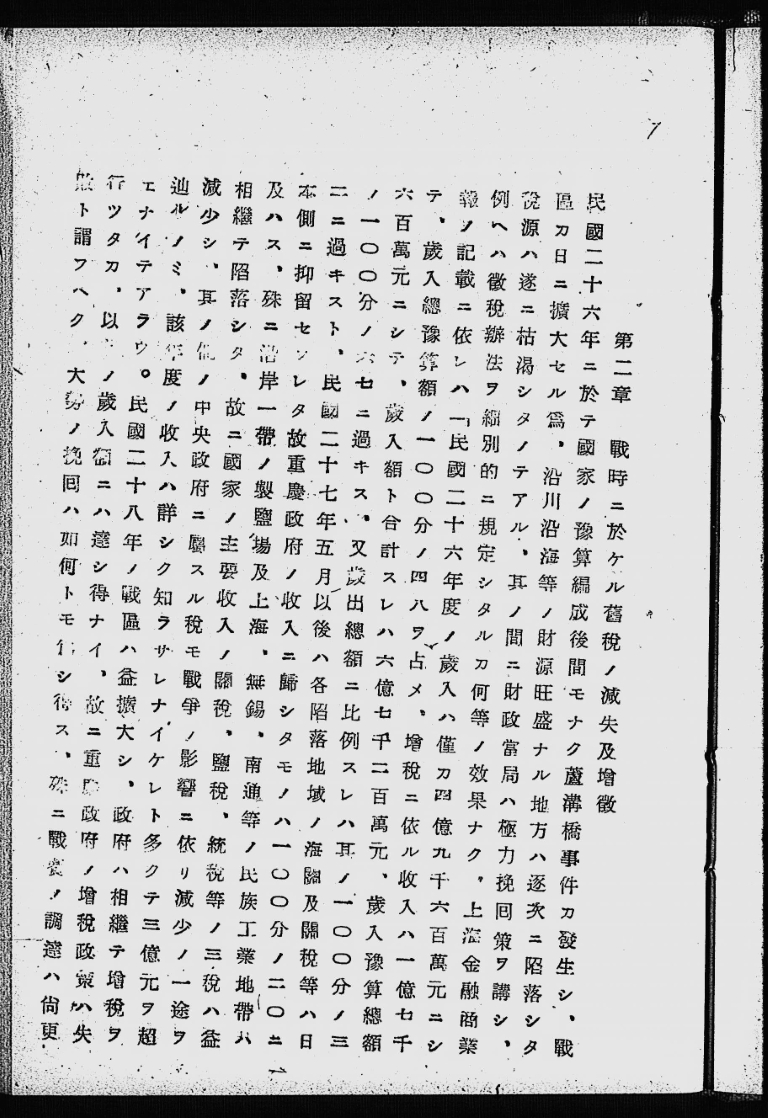 7
第二章　戰時ニ於ケル舊稅ノ減失及增徵
民國二十六年ニ於テ國家ノ豫算編成後間モナク蘆溝橋事件カ發生シ、戰
區カ日ニ擴大セル爲、沿川沿海等ノ財源旺盛ナル地方ハ逐次ニ陷落シタ
稅源ハ遂ニ枯渴シタノテアル、其ノ間ニ財政當局ハ極力挽回策ヲ講シ、
例ヘハ徵稅辦法ヲ細別的ニ規定シタルカ何等ノ效果ナク、上海金融商業
報ノ記載ニ依レハ「民國二十六年度ノ歲入ハ僅カ四億九千六百萬元ニシ
テ、歲入總豫算額ノ一〇〇分ノ四八ヲ占メ、增稅ニ依ル收入ハ一億七千
六百萬元ニシテ、歲入額ト合計スレハ六億七千二百萬元、歲入豫算總額
ノ一〇〇分ノ六七ニ過キス、又歲出總額ニ比例スレハ其ノ一〇〇分ノ三
二ニ過キスト、民國二十七年五月以後ハ各陷落地域ノ海關及關稅等ハ日
本側ニ抑留セラレタ故重慶政府ノ收入ニ歸シタモノハ一〇〇分ノ二〇ニ
及ハス、殊ニ沿岸一帶ノ製鹽場及上海、無錫、南通等ノ民族工業地帶ハ
相繼テ陷落シタ、故ニ國家ノ主要收入ノ關稅、鹽稅、統稅等ノ三稅ハ益
減少シ、其ノ他ノ中央政府ニ屬スル稅モ戰爭ノ影響ニ依リ減少ノ一途ヲ
辿ルノミ、該年度ノ收入ハ詳シク知ラサレナイケレト多クテ三億元ヲ超
エナイテアラウ。民國二十八年ノ戰區ハ益擴大シ、政府ハ相繼テ增稅ヲ
行ツタカ、以ノ歲入額ニハ達シ得ナイ、故ニ重慶政府ノ增稅政策ハ失
敗ト謂フヘク、大勢ノ挽回ハ如何トモ行シ得ス、殊ニ戰費ノ調達ハ尙更